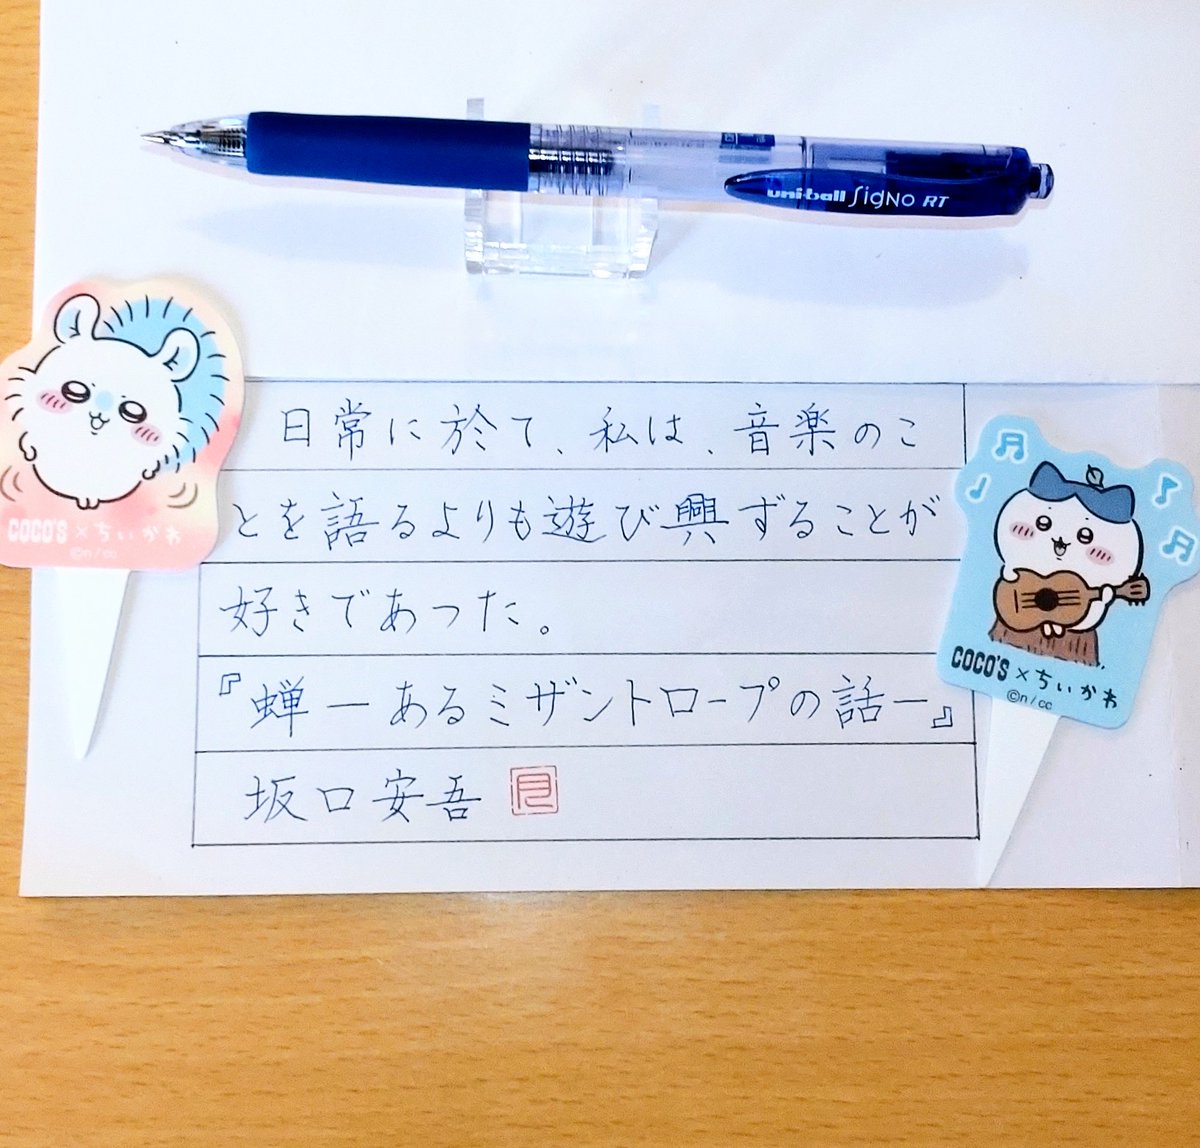 uni-ball SigNo RT
日常に於て、私は、音楽のこ
とを語るよりも遊び興ずることが
好きであった。
『蝉―あるミザントロープの話―』
坂口安吾
COCO'S×ちいかわ
©n/cc
COCO'S×ちいかわ
©n/cc